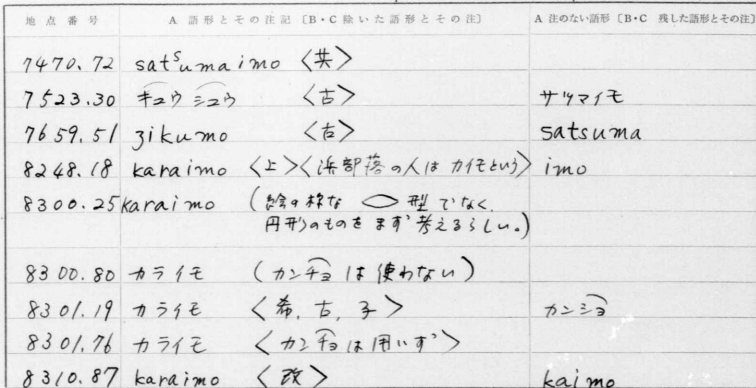 地点番号 A 語形とその注記〔B・C 除いた語形とその注〕 A 注のない語形〔B・C 残した語形とその注〕
7470.72 satˢumaimo 〈共〉
7523.30 キュウシュウ 〈古〉 サツマイモ
7659.51 ʒikumo 〈古〉 satsuma
8248.18 karaimo 〈上〉〈浜部落の人は カイモという〉 imo
8300.25 karaimo (絵の様な ⬭ 型でなく、
円形のものを まず考えるらしい。)
8300.80 カライモ (カンチョは使わない)
8301.19 カライモ 〈希, 古, 子〉 カンショ
8301.76 カライモ 〈カンチョは用いず〉
8310.87 karaimo 〈改〉 kaimo